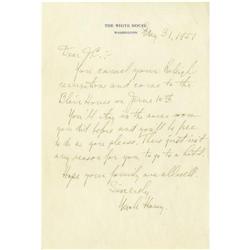 THE WHITE HOUSE
WASHINGTON
May 31, 1951
Dear J.C.:-
You cancel your Raleigh
reservation and come to the
Blair House on June 10th
You'll stay in the same room
you did before and you'll be free
to do as you please. There just isn't
any reason for you to go to a hotel.
Hope your family are all well.
Sincerely
Uncle Harry.